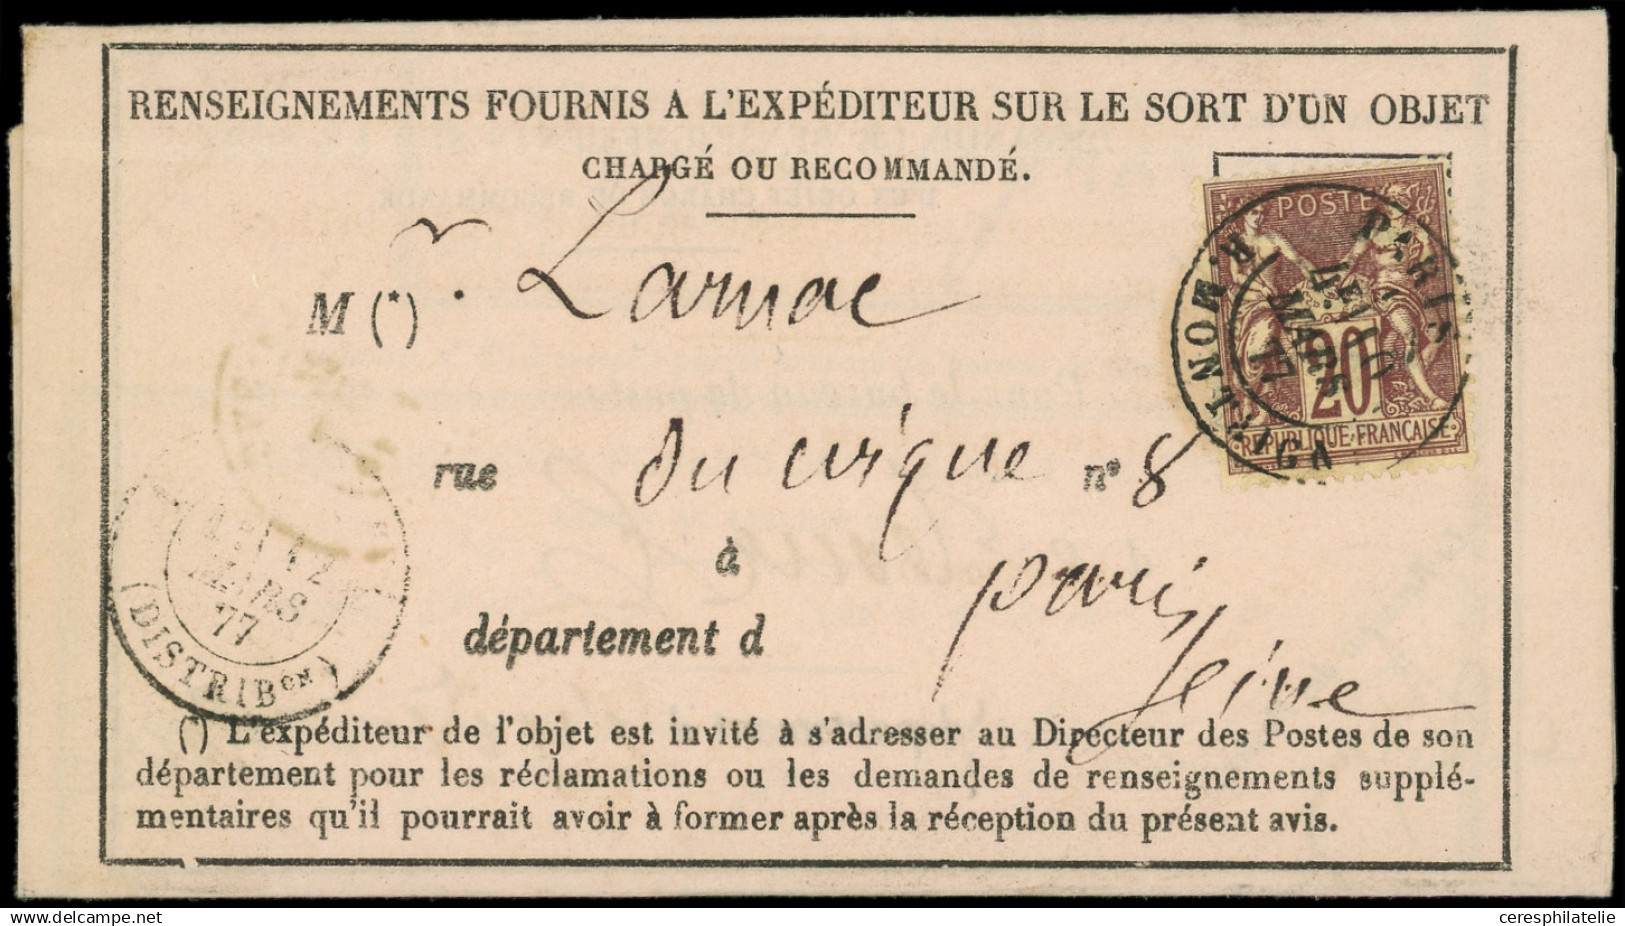 RENSEIGNEMENTS FOURNIS A L'EXPÉDITEUR SUR LE SORT D'UN OBJET
CHARGÉ OU RECOMMANDÉ.
POSTE
20
REPUBLIQUE FRANÇAISE
PARIS
R. MONTAIGU
10
MARS
77
M (*) r. Larnac
rue du cirque n° 8
à paris
département d Seine
12
MARS
77
(DISTRIBON)
(*) L'expéditeur de l'objet est invité à s'adresser au Directeur des Postes de son
département pour les réclamations ou les demandes de renseignements supplé-
mentaires qu'il pourrait avoir à former après la réception du présent avis.
www.delcampe.net
ceresphilatelie